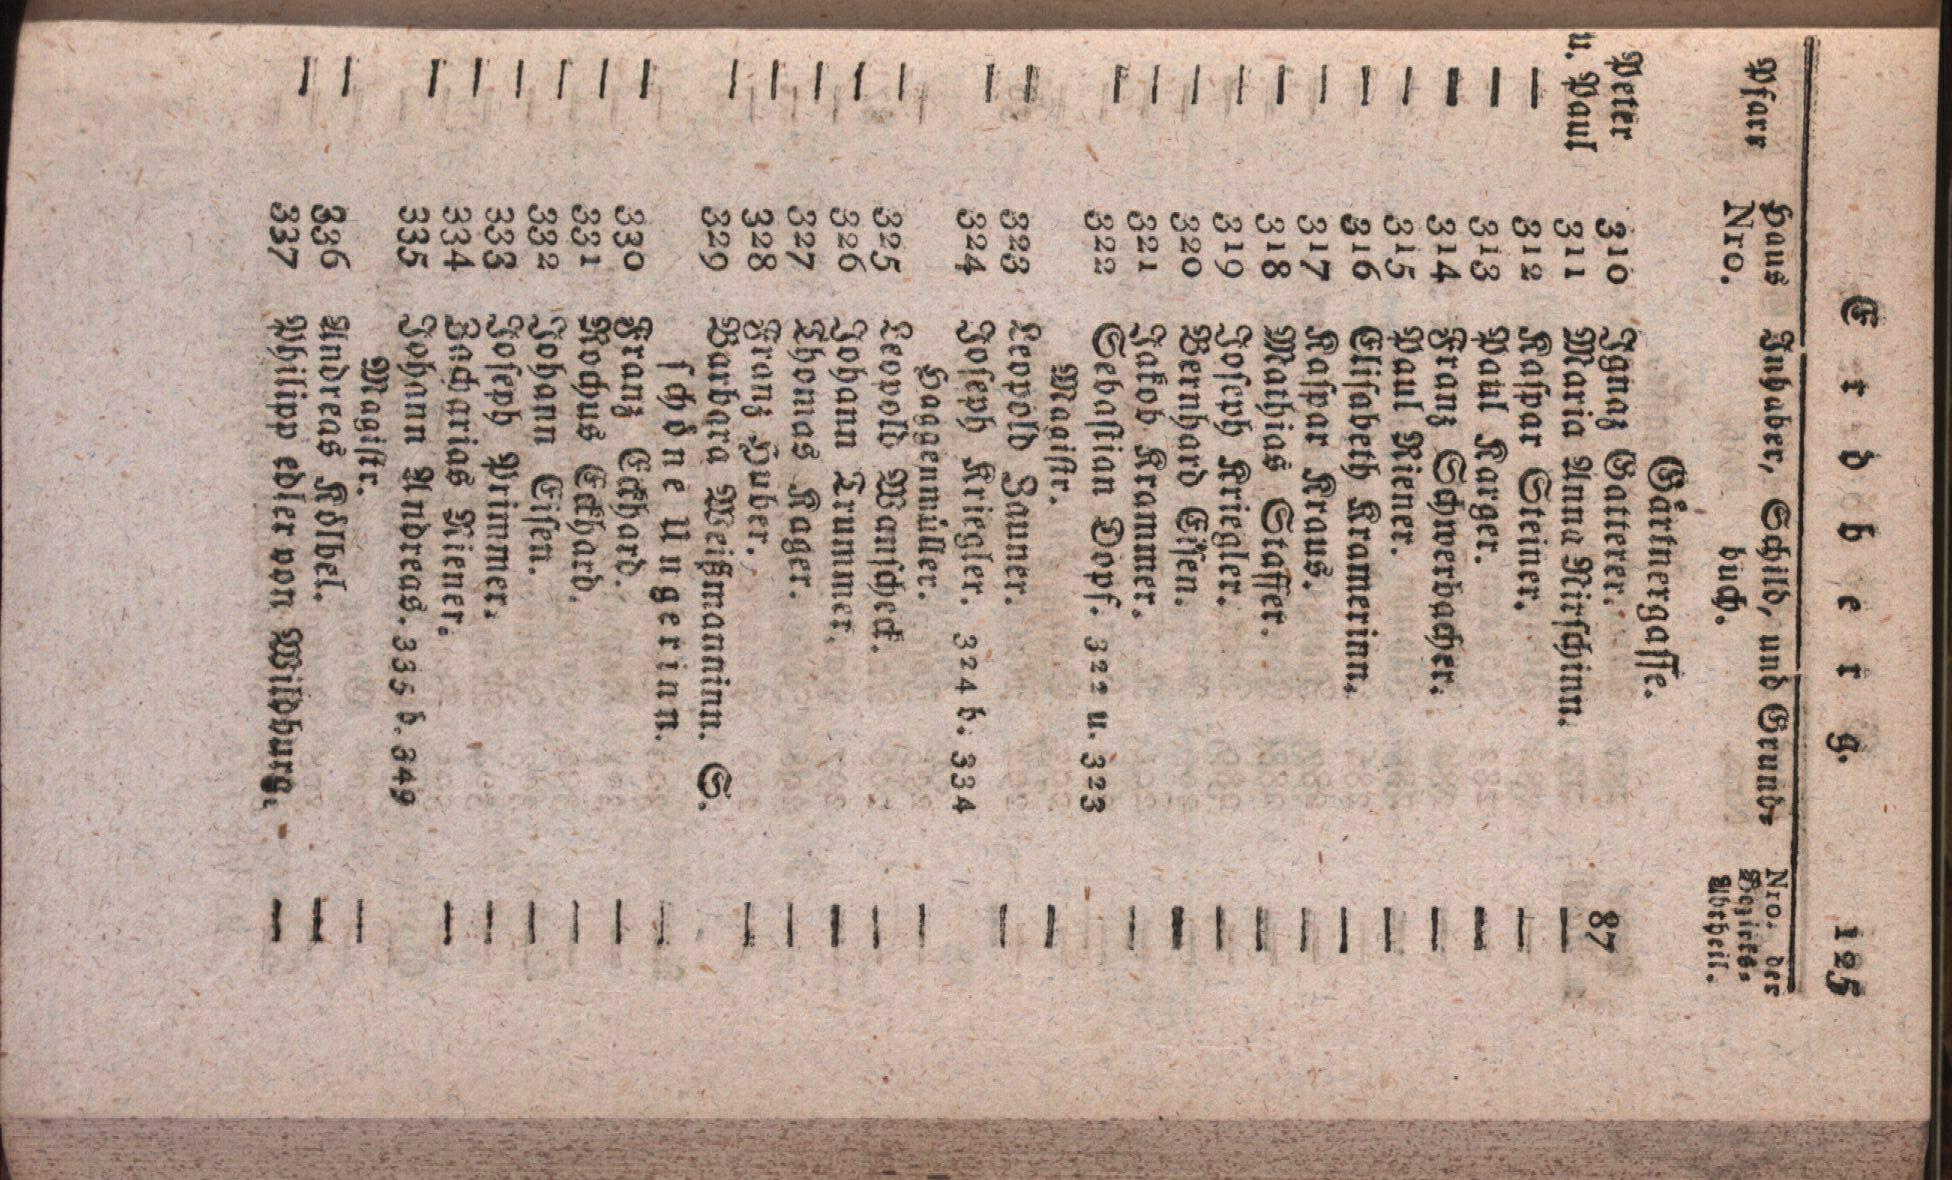 Erdberg. 125
Pfarr Haus Nro. Inhaber, Schild, und Grund- buch. Nro. der Bezirks- Abtheil.
Gärtnergasse.
Petter u. Paul 310 Ignaz Gatterer. 87
— 311 Maria Anna Kirschinn. —
— 312 Kaspar Steiner. —
— 313 Paul Karger. —
— 314 Franz Schwerbacher. —
— 315 Paul Riener. —
— 316 Elisabeth Kramerinn. —
— 317 Kaspar Kraus. —
— 318 Mathias Staffer. —
— 319 Joseph Kriegler. —
— 320 Bernhard Eisen. —
— 321 Jakob Krammer. —
— 322 Sebastian Dopf. 322 u. 323 —
Magistr.
— 323 Leopold Zauner. —
— 324 Joseph Kriegler. 324 b. 334 —
Haggenmüller.
— 325 Leopold Wamscheck. —
— 326 Johann Trummer. —
— 327 Thomas Kager. —
— 328 Franz Huber. —
— 329 Barbara Weißmanninn. S. —
schöne Ungerinn.
— 330 Franz Eckhard. —
— 331 Rochus Eckhard. —
— 332 Johann Eisen. —
— 333 Joseph Primmer. —
— 334 Zacharias Riener. —
— 335 Johann Andreas. 335 b. 349 —
Magistr.
— 336 Andreas Kölbel. —
— 337 Philipp edler von Wildburg. —